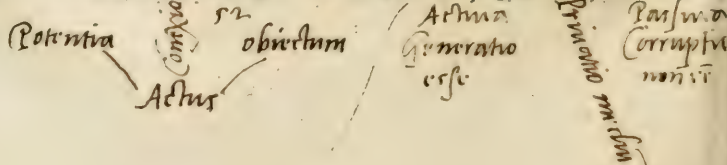 52
Potentia
Conexio
obiectum
Actus
Actiua
Generatio
esse
Priuatio
Passiua
Corruptio